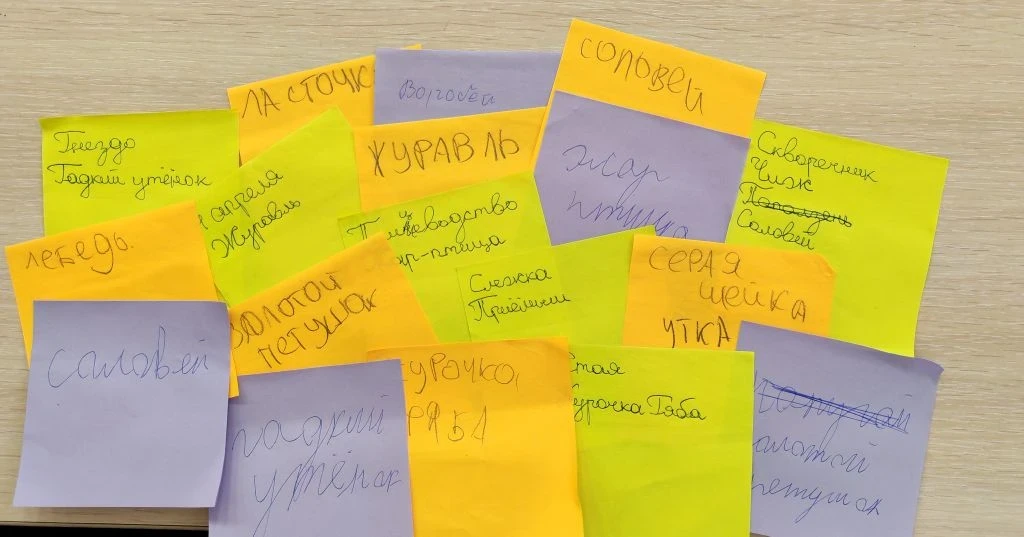 ЛАСТОЧК
Воробей
СОЛОВЕЙ
Гнездо
Гадкий утёнок
ЖУРАВЛЬ
жар
птица
Скворечник
Чиж
Поползень
Соловей
апреля
Журавль
жар-птица
лебедь.
ЗОЛОТОЙ
ПЕТУШОК
Слежка
СЕРАЯ
ШЕЙКА
УТКА
соловей
гадкий
утёнок
КУРОЧКА,
РЯБА
Стая
Курочка Ряба
попугай
золотой
петушок